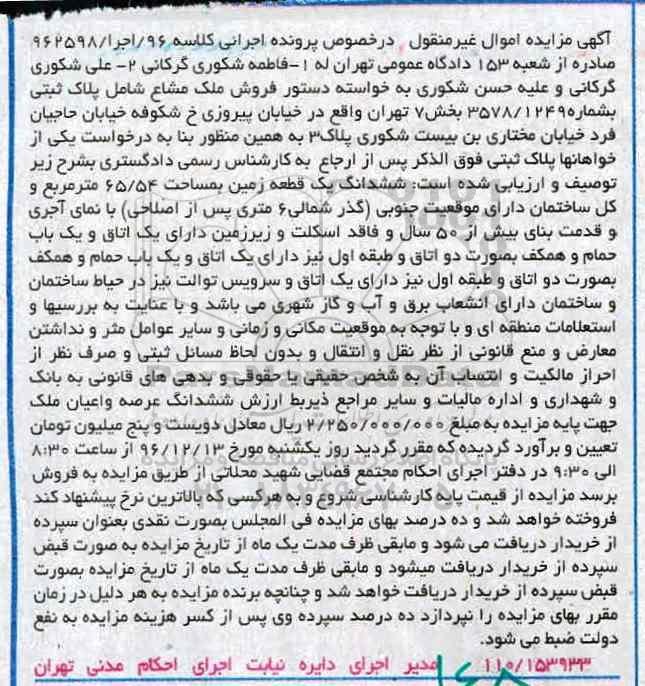 آگهی مزایده اموال غیرمنقول   درخصوص پرونده اجرائی کلاسه ۹۶/اجرا/۹۶۲۵۹۸
صادره از شعبه ۱۵۳ دادگاه عمومی تهران له ۱-فاطمه شکوری گرکانی ۲- علی شکوری
گرکانی و علیه حسن شکوری به خواسته دستور فروش ملک مشاع شامل پلاک ثبتی
بشماره۳۵۷۸/۱۲۴۹ بخش۷ تهران واقع در خیابان پیروزی خ شکوفه خیابان حاجیان
فرد خیابان مختاری بن بیست شکوری پلاک۳ به همین منظور بنا به درخواست یکی از
خواهانها پلاک ثبتی فوق الذکر پس از ارجاع  به کارشناس رسمی دادگستری بشرح زیر
توصیف و ارزیابی شده است: ششدانگ یک قطعه زمین بمساحت ۶۵/۵۴ مترمربع و
کل ساختمان دارای موقعیت جنوبی (گذر شمالی۶ متری پس از اصلاحی) با نمای آجری
و قدمت بنای بیش از ۵۰ سال و فاقد اسکلت و زیرزمین دارای یک اتاق و یک باب
حمام و همکف بصورت دو اتاق و طبقه اول نیز دارای یک اتاق و یک باب حمام و همکف
بصورت دو اتاق و طبقه اول نیز دارای یک اتاق و سرویس توالت نیز در حیاط ساختمان
و ساختمان دارای انشعاب برق و آب و گاز شهری می باشد و با عنایت به بررسیها و
استعلامات منطقه ای و با توجه به موقعیت مکانی و زمانی و سایر عوامل مثر و نداشتن
معارض و منع قانونی از نظر نقل و انتقال و بدون لحاظ مسائل ثبتی و صرف نظر از
احراز مالکیت و انتساب آن به شخص حقیقی یا حقوقی و بدهی های قانونی به بانک
و شهرداری و اداره مالیات و سایر مراجع ذیربط ارزش ششدانگ عرصه واعیان ملک
جهت پایه مزایده به مبلغ ۲/۲۵۰/۰۰۰/۰۰۰ ریال معادل دویست و پنج میلیون تومان
تعیین و برآورد گردیده که مقرر گردید روز یکشنبه مورخ ۹۶/۱۲/۱۳ از ساعت ۸:۳۰
الی ۹:۳۰ در دفتر اجرای احکام مجتمع قضایی شهید محلاتی از طریق مزایده به فروش
برسد مزایده از قیمت پایه کارشناسی شروع و به هرکسی که بالاترین نرخ پیشنهاد کند
فروخته خواهد شد و ده درصد بهای مزایده فی المجلس بصورت نقدی بعنوان سپرده
از خریدار دریافت می شود و مابقی ظرف مدت یک ماه از تاریخ مزایده به صورت قبض
سپرده از خریدار دریافت میشود و مابقی ظرف مدت یک ماه از تاریخ مزایده بصورت
قبض سپرده از خریدار دریافت خواهد شد و چنانچه برنده مزایده به هر دلیل در زمان
مقرر بهای مزایده را نپردازد ده درصد سپرده وی پس از کسر هزینه مزایده به نفع
دولت ضبط می شود.
۱۱۰/۱۵۳۹۳۳   مدیر اجرای دایره نیابت اجرای احکام مدنی تهران